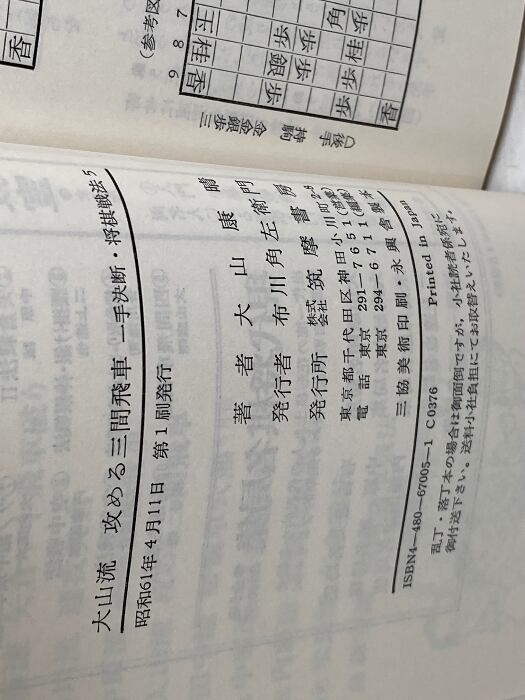 大山流　攻める三間飛車 一手決断・将棋戦法5
昭和61年4月11日　第1刷発行
著者 大山康晴
発行者 布川角左衛門
発行所 株式会社 筑摩書房
東京都千代田区神田小川町2-8
電話 東京 291-7651(営業)
東京 294-6711(編集)
三協美術印刷・永興舎製本
ISBN4-480-67005-1 C0376　Printed in Japan
乱丁・落丁本の場合は御面倒ですが，小社読者係宛に
御付送下さい。送料小社負担にてお取替えいたします。
(参考図
7
8
9
王
桂
香
角
歩
歩
歩
桂
銀
歩
歩
歩
歩
香
香
後手
持駒
金金銀歩三